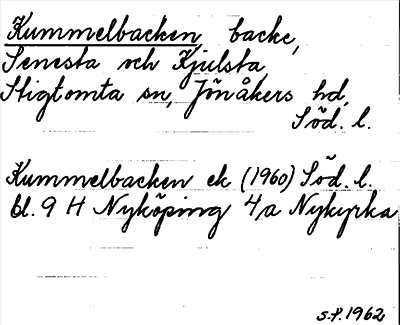 Kummelbacken, backe,
Senesta och Kjulsta,
Stigtomta sn, Jönåkers hd,
Söd. l.
Kummelbacken ek (1960) Söd. l.
bl. 9 H Nyköping 4a Nykyrka
s.f. 1962